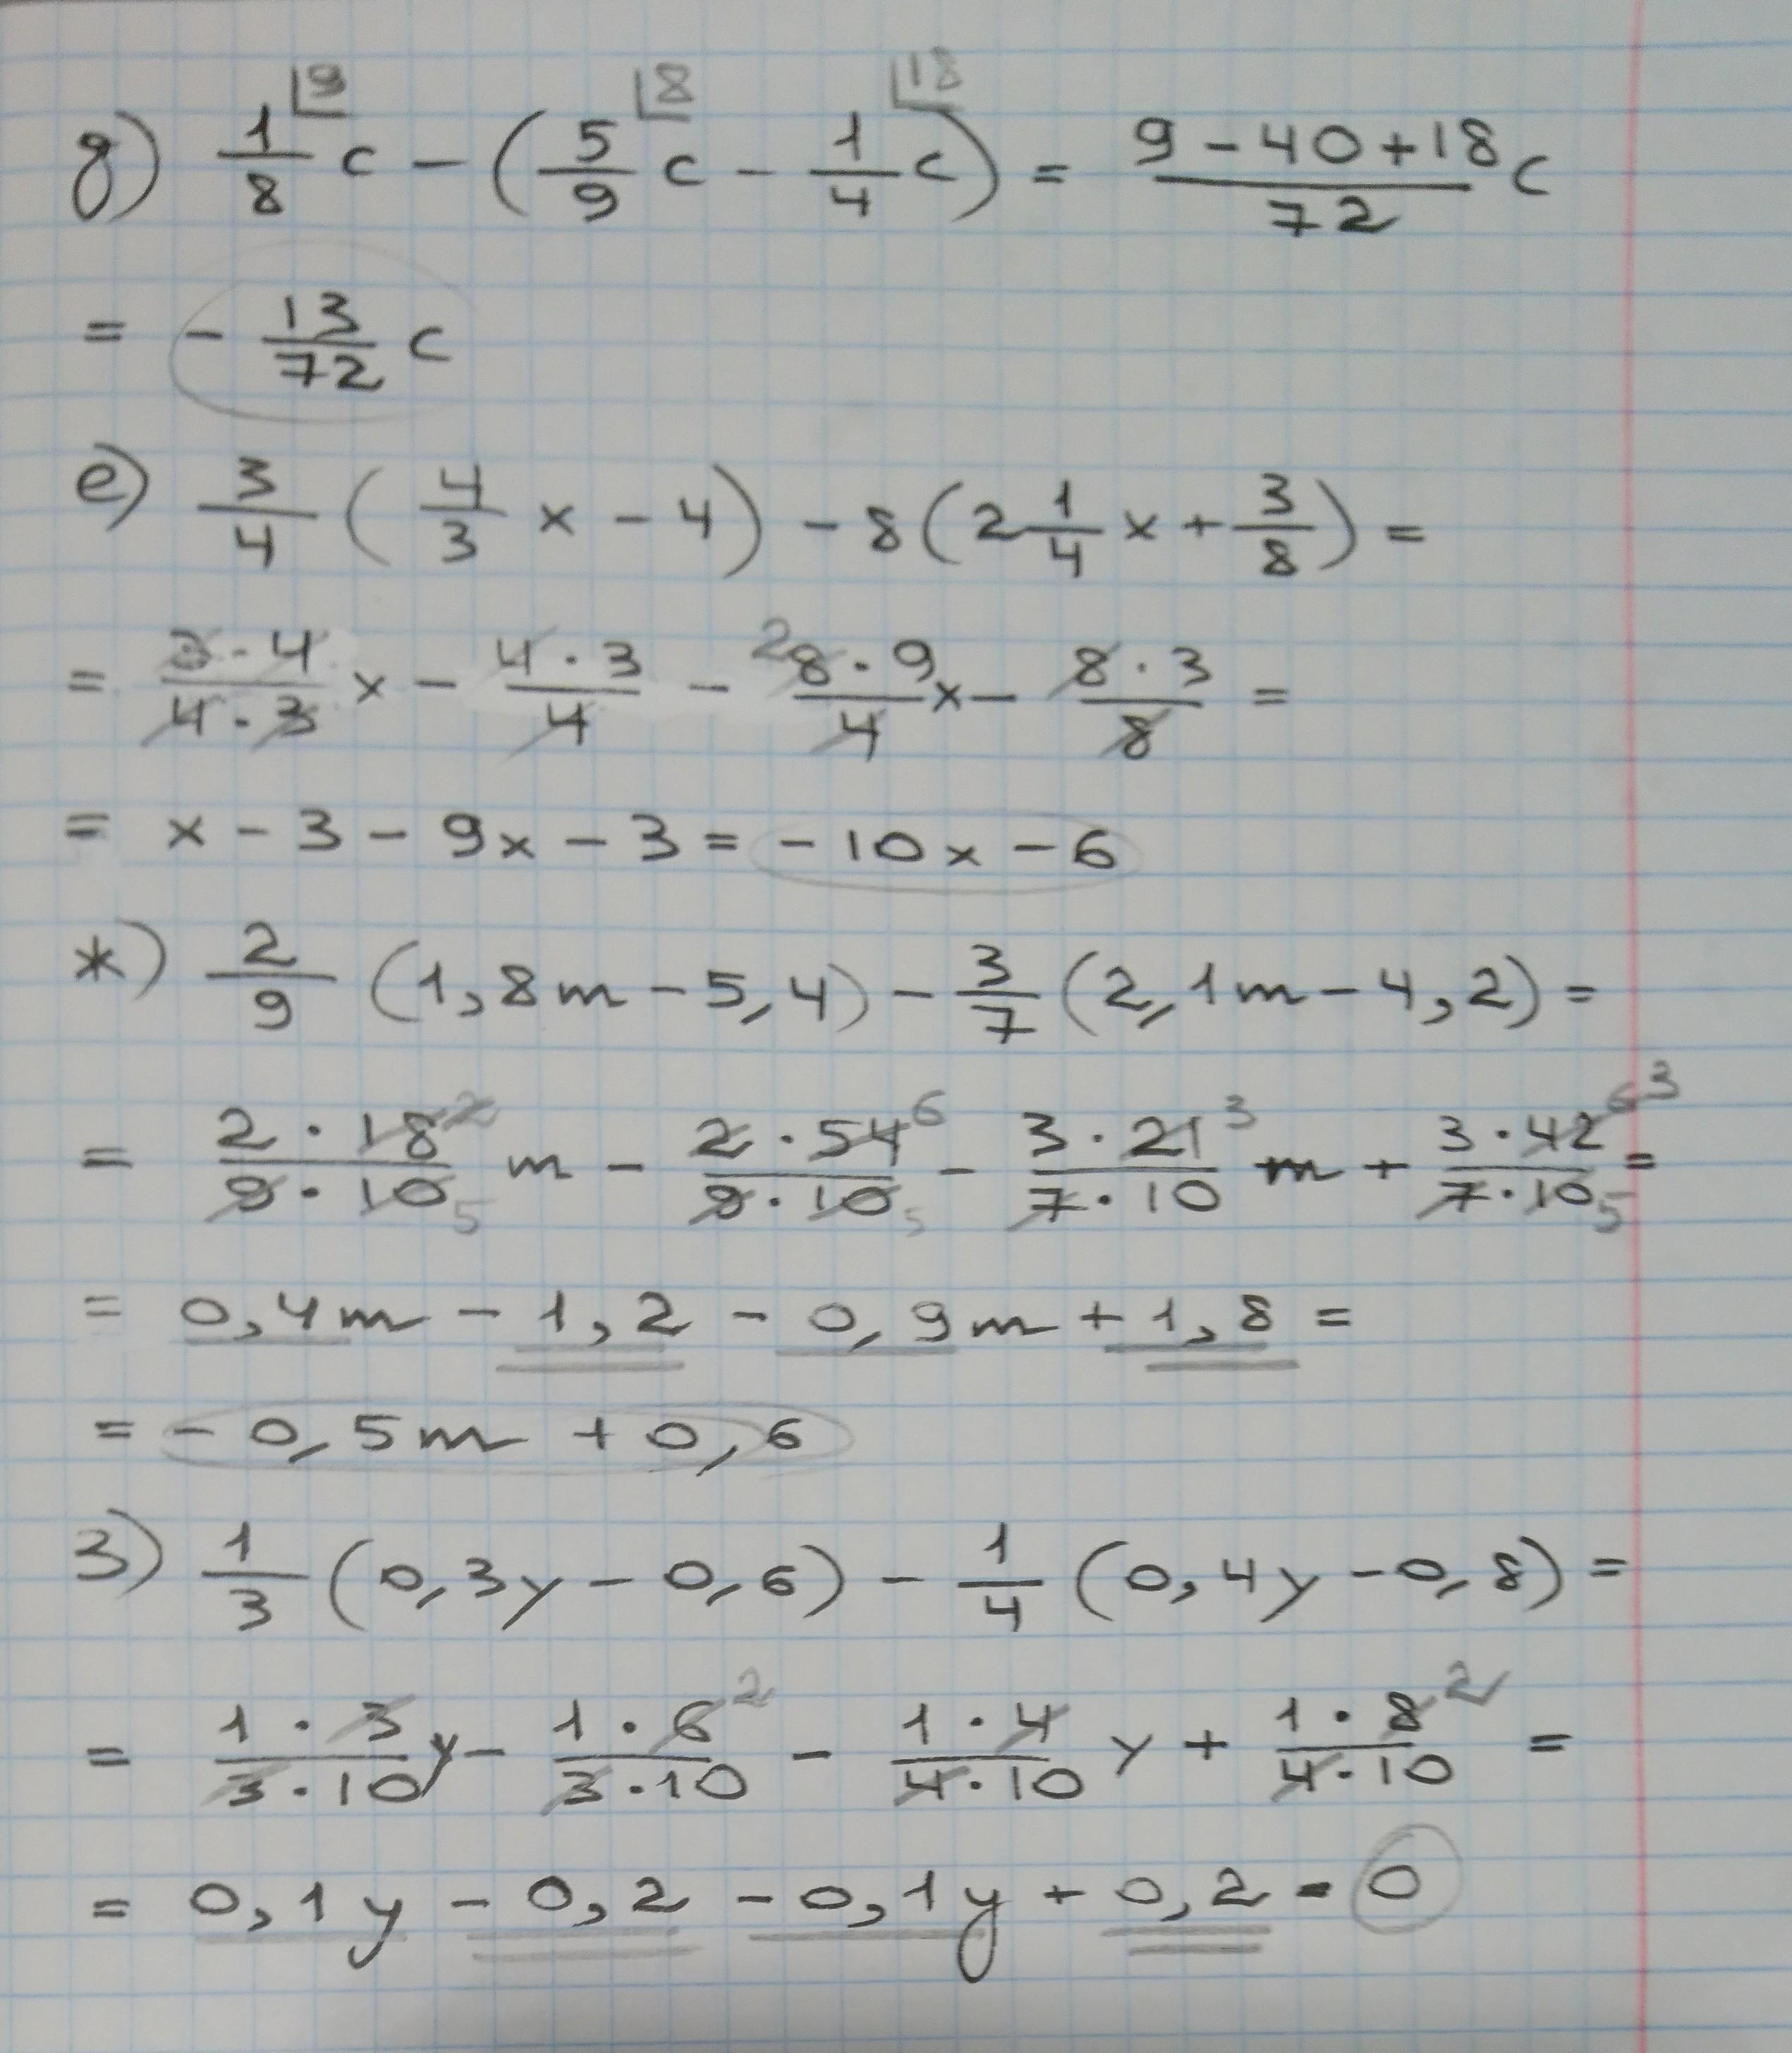 д) 1/8 ⌊9 c - (5/9 ⌊8 c - 1/4 ⌊18 c) = (9 - 40 + 18)/72 c
= - 13/72 c
е) 3/4 (4/3 x - 4) - 8 (2 1/4 x + 3/8) =
= (3 · 4)/(4 · 3) x - (4 · 3)/4 - (²8 · 9)/4 x - (8 · 3)/8 =
= x - 3 - 9x - 3 = -10x - 6
ж) 2/9 (1,8m - 5,4) - 3/7 (2,1m - 4,2) =
= (2 · 18²)/(9 · 10₅) m - (2 · 54⁶)/(9 · 10₅) - (3 · 21³)/(7 · 10) m + (3 · 42⁶ ³)/(7 · 10₅) =
= 0,4m - 1,2 - 0,9m + 1,8 =
= -0,5m + 0,6
з) 1/3 (0,3y - 0,6) - 1/4 (0,4y - 0,8) =
= (1 · 3)/(3 · 10) y - (1 · 6²)/(3 · 10) - (1 · 4)/(4 · 10) y + (1 · 8²)/(4 · 10) =
= 0,1y - 0,2 - 0,1y + 0,2 = 0